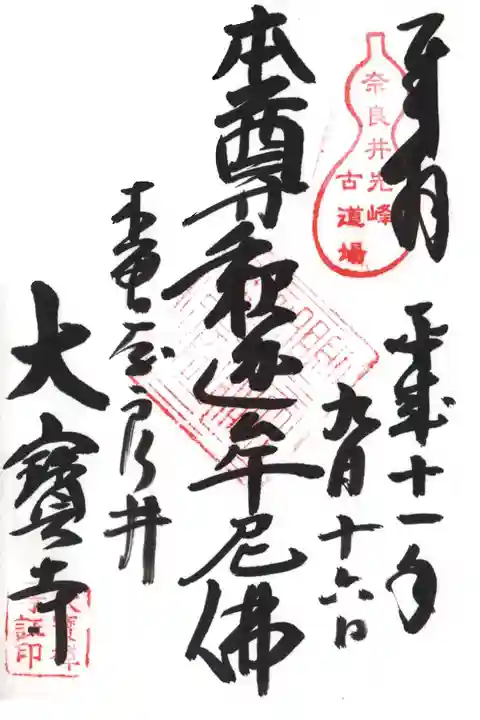 奉拝
奈良井光峰
古道場
平成十一年
九月十六日
本尊釈迦牟尼佛
木曽奈良井
大寶寺